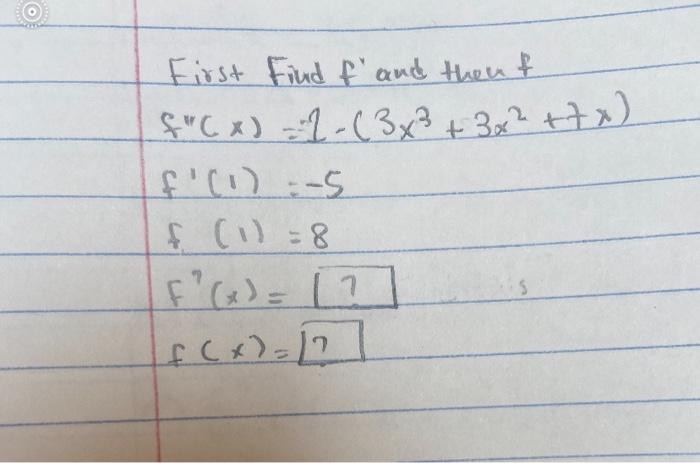 First Find f' and then f
f"(x) = 1 - (3x³ + 3x² + 7x)
f'(1) = -5
f (1) = 8
f'(x) = ?
f(x) = ?